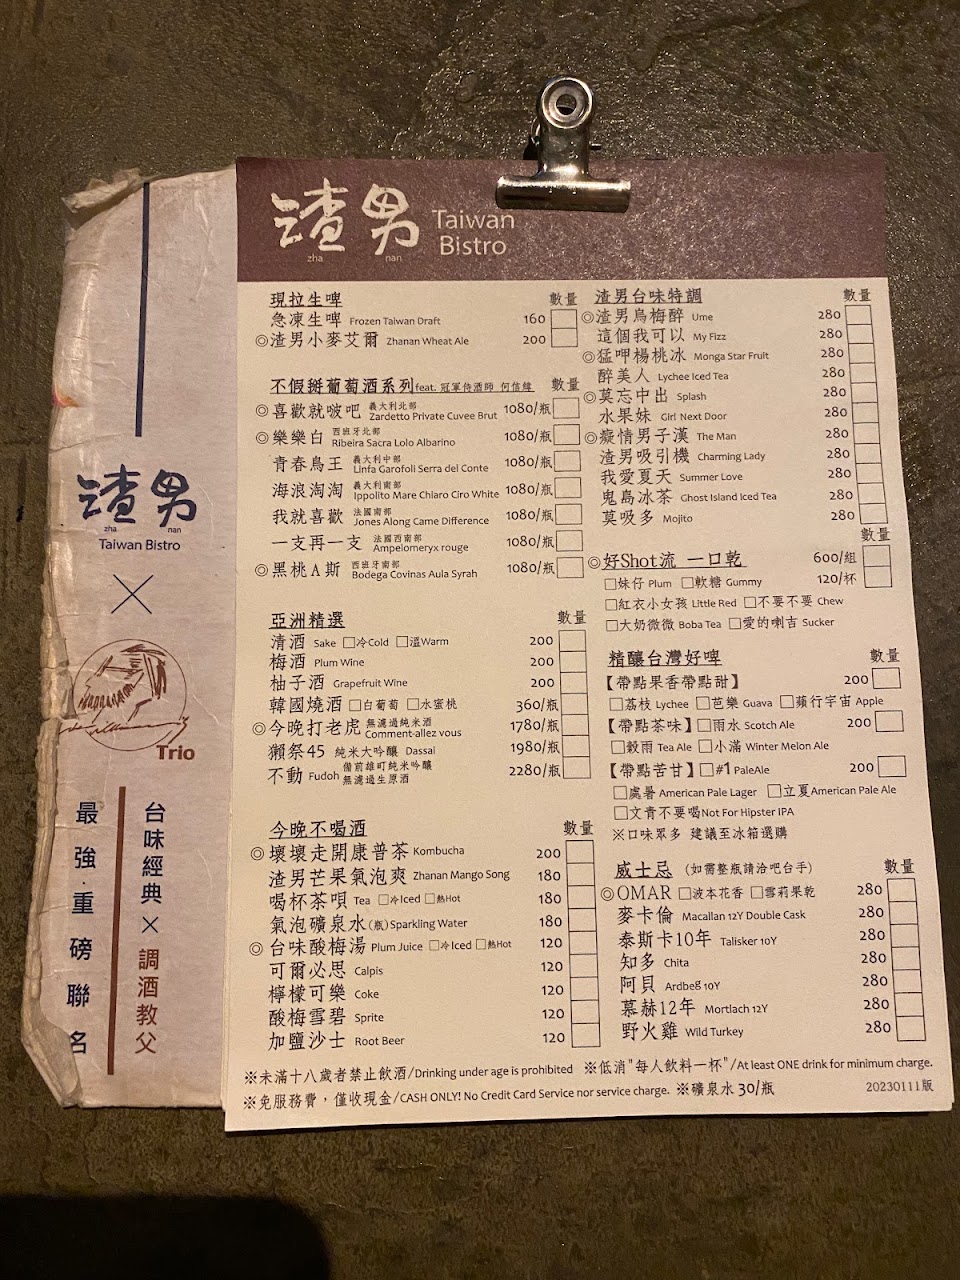 渣男 Taiwan Bistro
zha nan
現拉生啤 數量
急凍生啤 Frozen Taiwan Draft 160
◎渣男小麥艾爾 Zhanan Wheat Ale 200
不假掰葡萄酒系列 feat. 冠軍侍酒師 何信緯 數量
◎喜歡就啵吧 義大利北部 Zardetto Private Cuvee Brut 1080/瓶
◎樂樂白 西班牙北部 Ribeira Sacra Lolo Albarino 1080/瓶
青春鳥王 義大利中部 Linfa Garofoli Serra del Conte 1080/瓶
海浪淘淘 義大利南部 Ippolito Mare Chiaro Ciro White 1080/瓶
我就喜歡 法國南部 Jones Along Came Difference 1080/瓶
一支再一支 法國西南部 Ampelomeryx rouge 1080/瓶
◎黑桃A斯 西班牙南部 Bodega Covinas Aula Syrah 1080/瓶
亞洲精選 數量
清酒 Sake □冷Cold □溫Warm 200
梅酒 Plum Wine 200
柚子酒 Grapefruit Wine 200
韓國燒酒 □白葡萄 □水蜜桃 360/瓶
◎今晚打老虎 無濾過純米酒 Comment-allez vous 1780/瓶
獺祭45 純米大吟釀 Dassai 1980/瓶
不動 Fudoh 備前雄町純米吟釀 無濾過生原酒 2280/瓶
今晚不喝酒 數量
◎壞壞走開康普茶 Kombucha 200
渣男芒果氣泡爽 Zhanan Mango Song 180
喝杯茶唄 Tea □冷Iced □熱Hot 180
氣泡礦泉水(瓶) Sparkling Water 180
◎台味酸梅湯 Plum Juice □冷Iced □熱Hot 120
可爾必思 Calpis 120
檸檬可樂 Coke 120
酸梅雪碧 Sprite 120
加鹽沙士 Root Beer 120
渣男台味特調 數量
◎渣男烏梅醉 Ume 280
這個我可以 My Fizz 280
◎猛呷楊桃冰 Monga Star Fruit 280
醉美人 Lychee Iced Tea 280
◎莫忘中出 Splash 280
水果妹 Girl Next Door 280
◎癡情男子漢 The Man 280
渣男吸引機 Charming Lady 280
我愛夏天 Summer Love 280
鬼島冰茶 Ghost Island Iced Tea 280
莫吸多 Mojito 280
數量
◎好Shot流 一口乾 600/組
□妹仔 Plum □軟糖 Gummy 120/杯
□紅衣小女孩 Little Red □不要不要 Chew
□大奶微微 Boba Tea □愛的喇吉 Sucker
精釀台灣好啤 數量
【帶點果香帶點甜】 200
□荔枝 Lychee □芭樂 Guava □蘋行宇宙 Apple
【帶點茶味】□雨水 Scotch Ale 200
□穀雨 Tea Ale □小滿 Winter Melon Ale
【帶點苦甘】□#1 PaleAle 200
□處暑 American Pale Lager □立夏 American Pale Ale
□文青不要喝 Not For Hipster IPA
※口味眾多 建議至冰箱選購
威士忌 (如需整瓶請洽吧台手) 數量
◎OMAR □波本花香 □雪莉果乾 280
麥卡倫 Macallan 12Y Double Cask 280
泰斯卡10年 Talisker 10Y 280
知多 Chita 280
阿貝 Ardbeg 10Y 280
慕赫12年 Mortlach 12Y 280
野火雞 Wild Turkey 280
※未滿十八歲者禁止飲酒/Drinking under age is prohibited ※低消"每人飲料一杯"/At least ONE drink for minimum charge.
※免服務費，僅收現金/CASH ONLY! No Credit Card Service nor service charge. ※礦泉水 30/瓶
20230111版
渣男
zha nan
Taiwan Bistro
Trio
台味經典×調酒教父
最強·重磅聯名